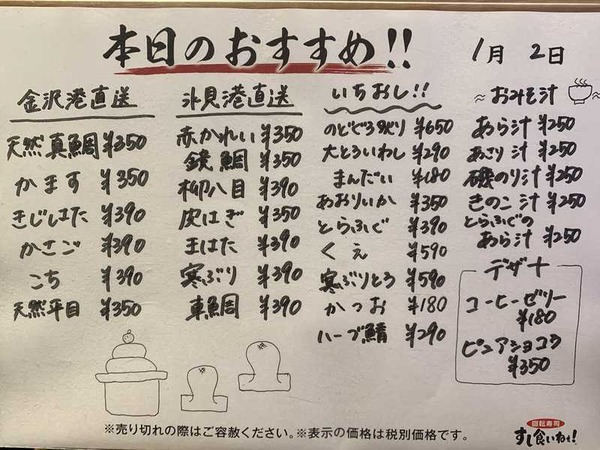 本日のおすすめ!!
1月 2日
金沢港直送
天然真鯛 ¥350
かます ¥350
きじはた ¥390
かさご ¥390
こち ¥390
天然平目 ¥350
氷見港直送
赤かれい ¥350
鏡鯛 ¥350
柳八目 ¥390
皮はぎ ¥350
玉はた ¥390
寒ぶり ¥390
車鯛 ¥390
いちおし!!
のどぐろ炙り ¥650
大とろいわし ¥290
まんだい ¥180
あおりいか ¥350
とらふぐ ¥390
くえ ¥590
寒ぶりとろ ¥590
かつお ¥180
ハーブ鯖 ¥290
~おみそ汁~
あら汁 ¥250
あさり汁 ¥250
磯のり汁 ¥250
きのこ汁 ¥250
とらふぐの
あら汁 ¥250
デザート
コーヒーゼリー
¥180
ピュアショコラ
¥350
※売り切れの際はご容赦ください。※表示の価格は税別価格です。
回転寿司
すし食いねぇ!